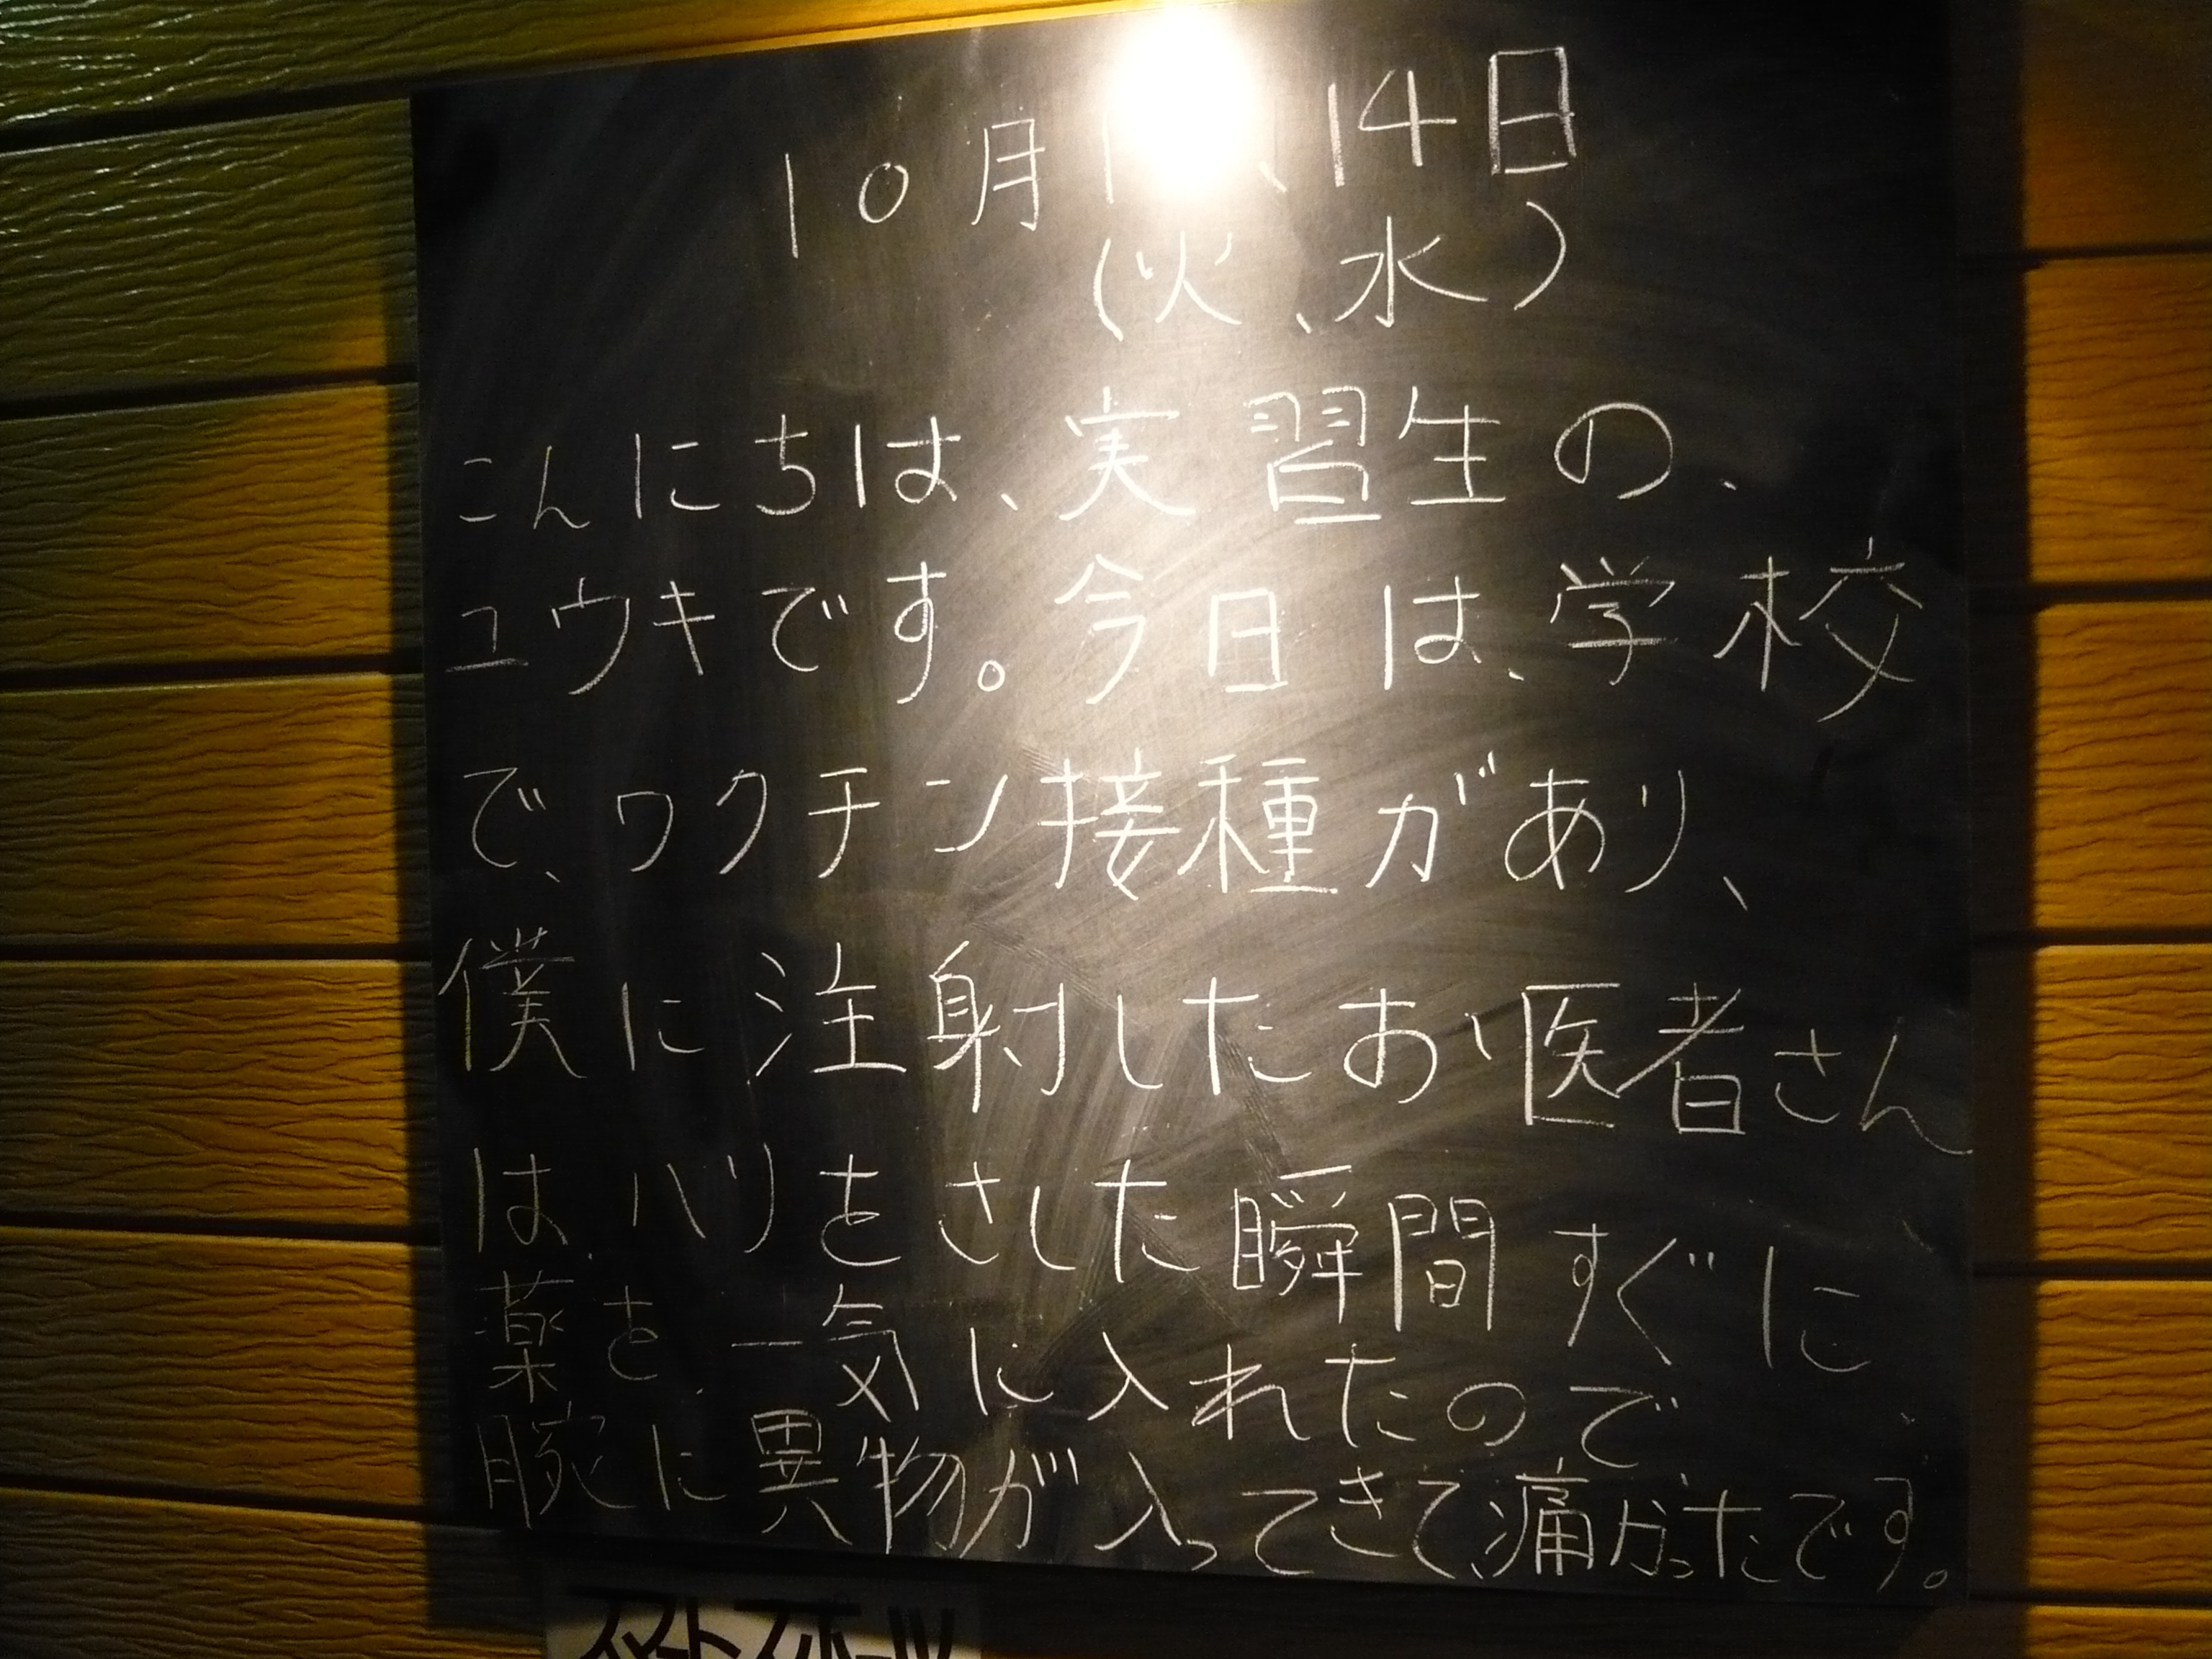 10月1 、14日
(火、水)
こんにちは、実習生の、
ユウキです。今日は、学校
で、ワクチン接種があり、
僕に注射したお医者さん
は、ハリをさした瞬間すぐに
薬を、一気に入れたので
腕に異物が入ってきて、痛かったです。
スマートスポーツ